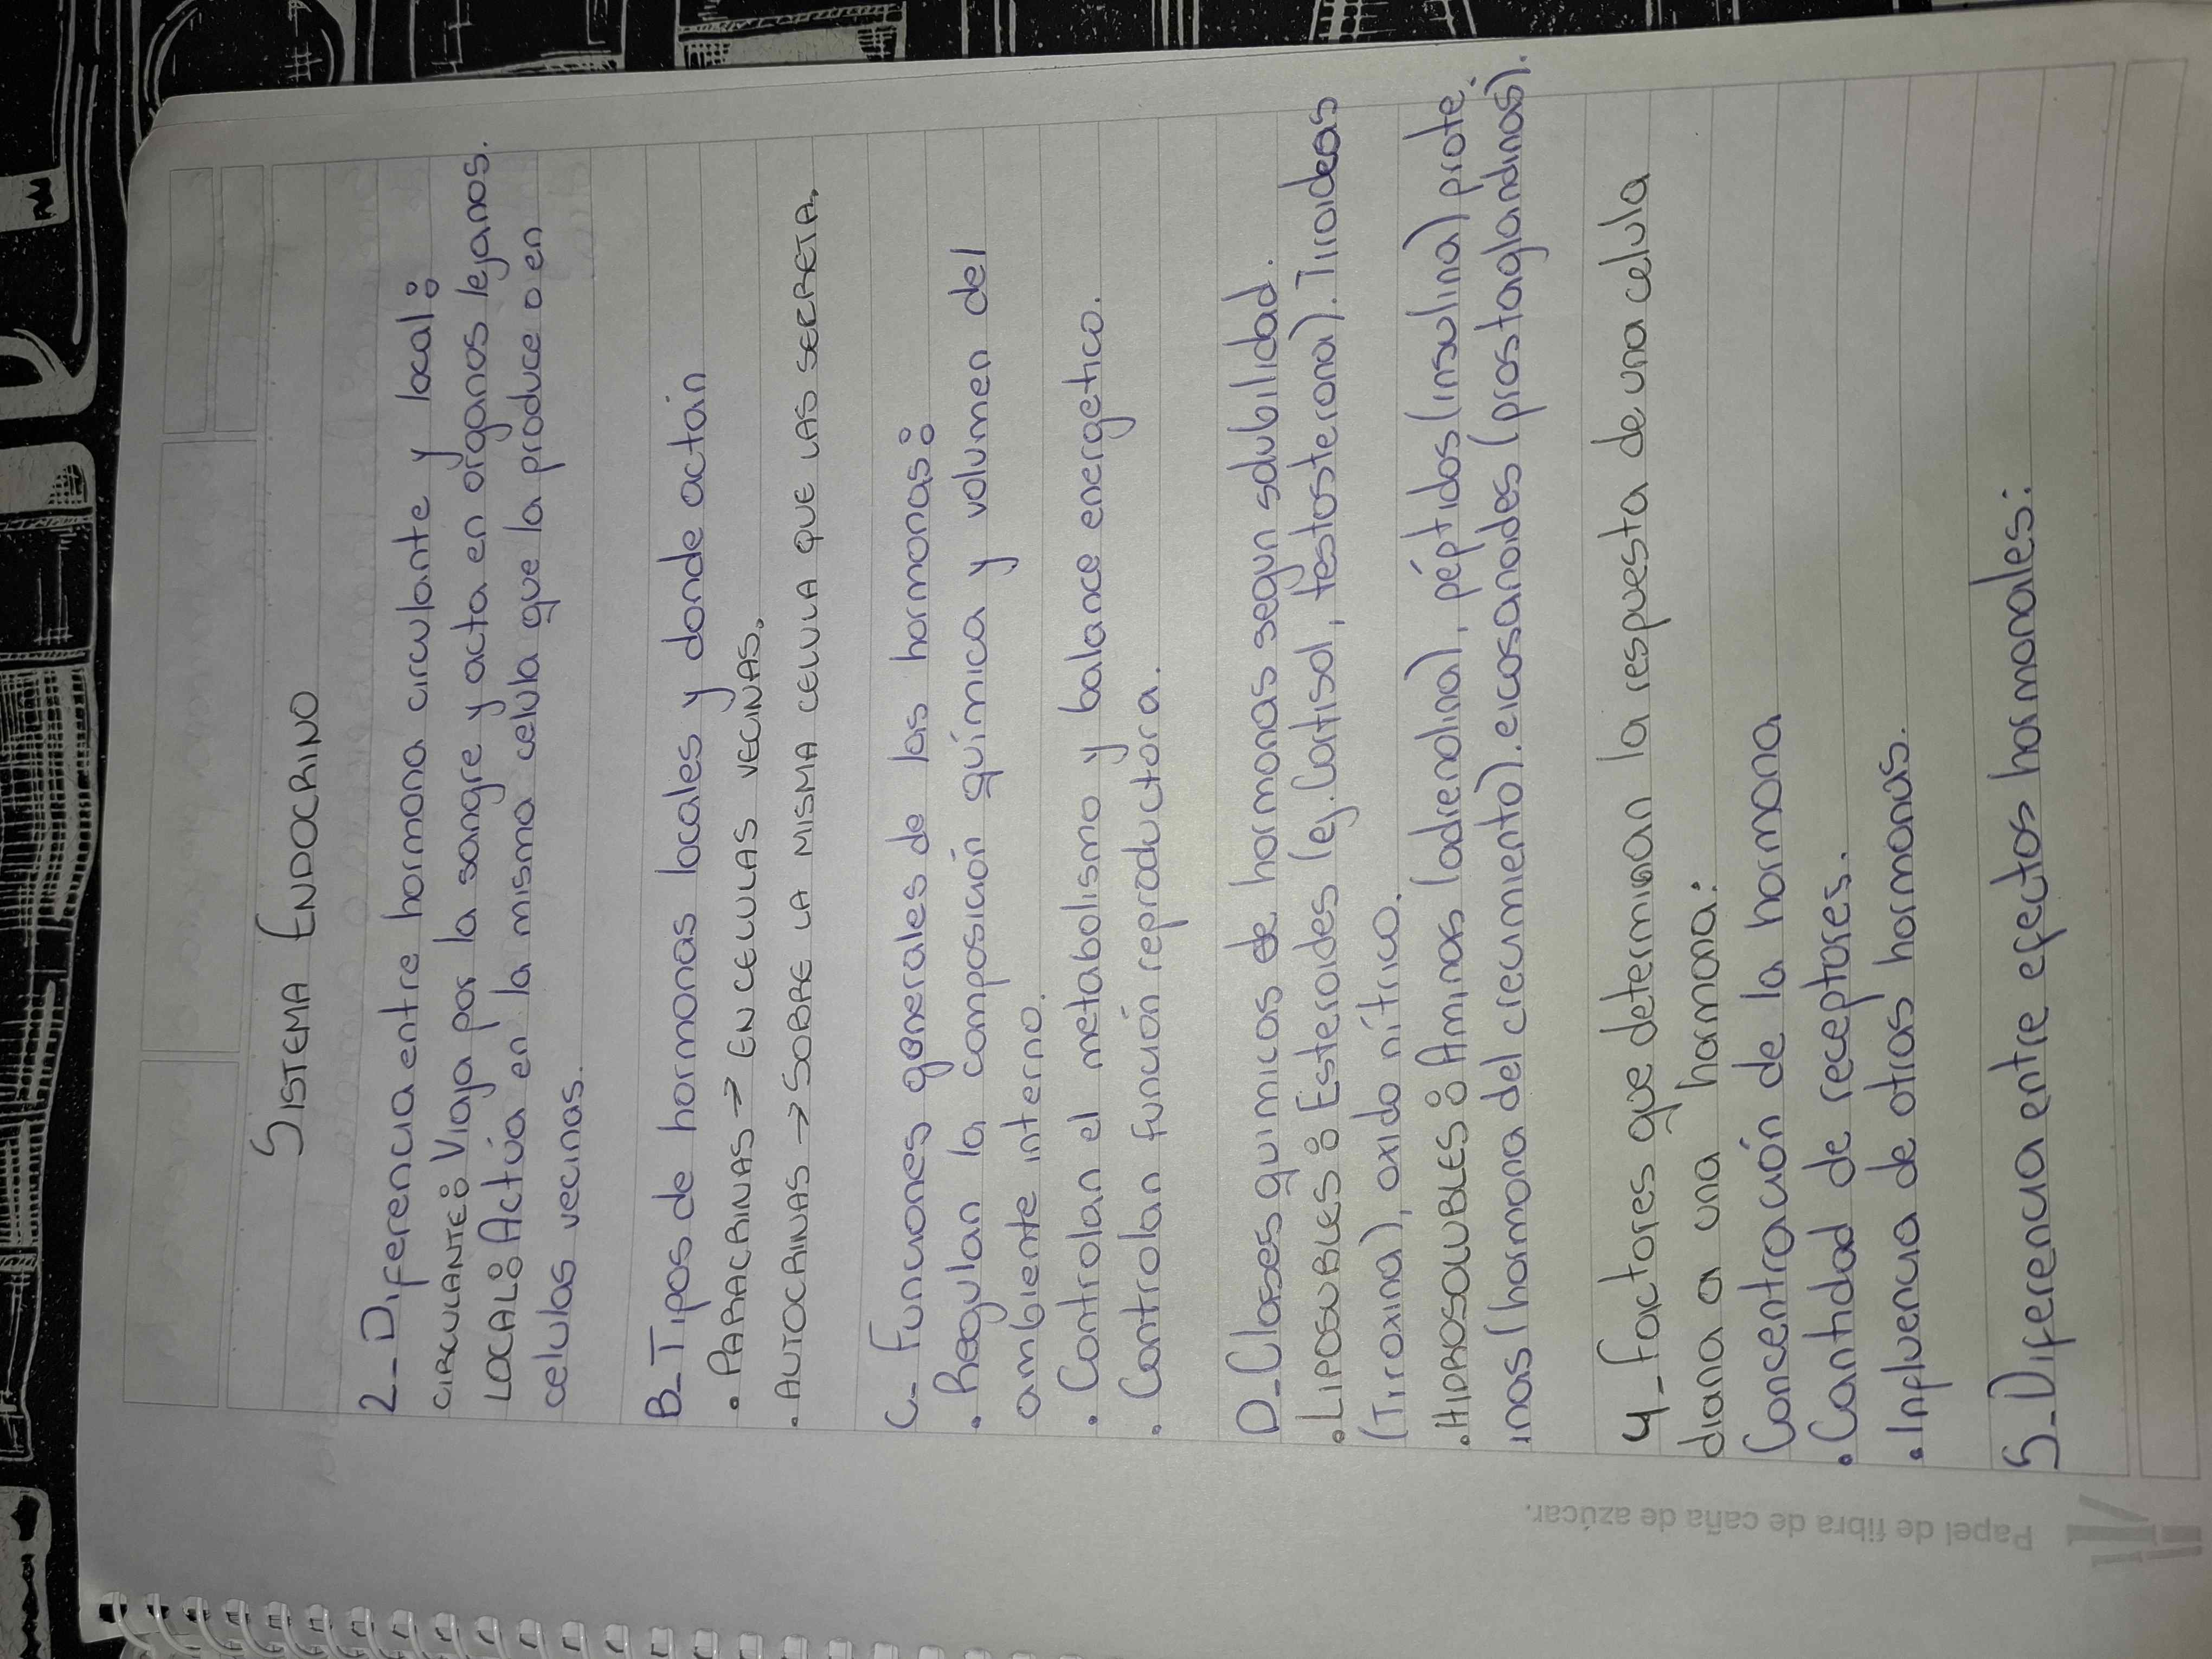 SISTEMA ENDOCRINO
2_Diferencia entre hormona circulante y local:
CIRCULANTE: Viaja por la sangre y acta en organos lejanos.
LOCAL: Actúa en la misma celula que la produce o en
celulas vecinas.
B_Tipos de hormonas locales y donde actain
• PARACRINAS → EN CELULAS VECINAS.
• AUTOCRINAS → SOBRE LA MISMA CELULA QUE LAS SECRETA.
C_ Funciones generales de las hormonas:
• Regulan la composición química y volumen del
ambiente interno.
• Controlan el metabolismo y balance energetico.
• Controlan función reproductora.
D_Clases quimicas de hormonas segun solubilidad.
• LIPOSUBLES: Esteroides (ej. Cortisol, testosterona). Tiroideas
(Tiroxina), oxido nítrico.
• HIDROSOLUBLES: Aminas (adrenalina), péptidos (insulina) prote.
inas (hormona del crecimiento). eicosanoides (prostaglandinas).
4_ factores que determinan la respuesta de una celula
diana a una hormona:
Concentración de la hormona
• Cantidad de receptores.
• Influencia de otras hormonas.
5_Diferencia entre efectos hormonales:
Papel de fibra de caña de azúcar.